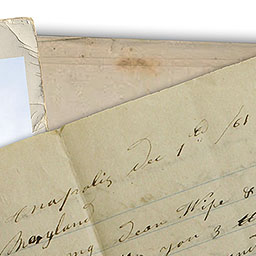 Anapolis Dec 1rd /61
Maryland
my Dear Wife &
you 3